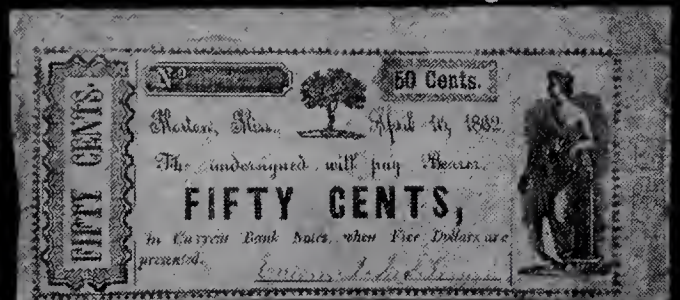 FIFTY CENTS.
No
50 Cents.
Morton, Miss., April 16, 1862
The undersigned will pay Bearer
FIFTY CENTS,
in Current Bank Notes, when Five Dollars are
presented.